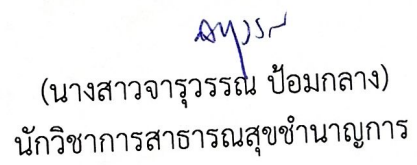 (นางสาวจารุวรรณ ป้อมกลาง)
นักวิชาการสาธารณสุขชำนาญการ